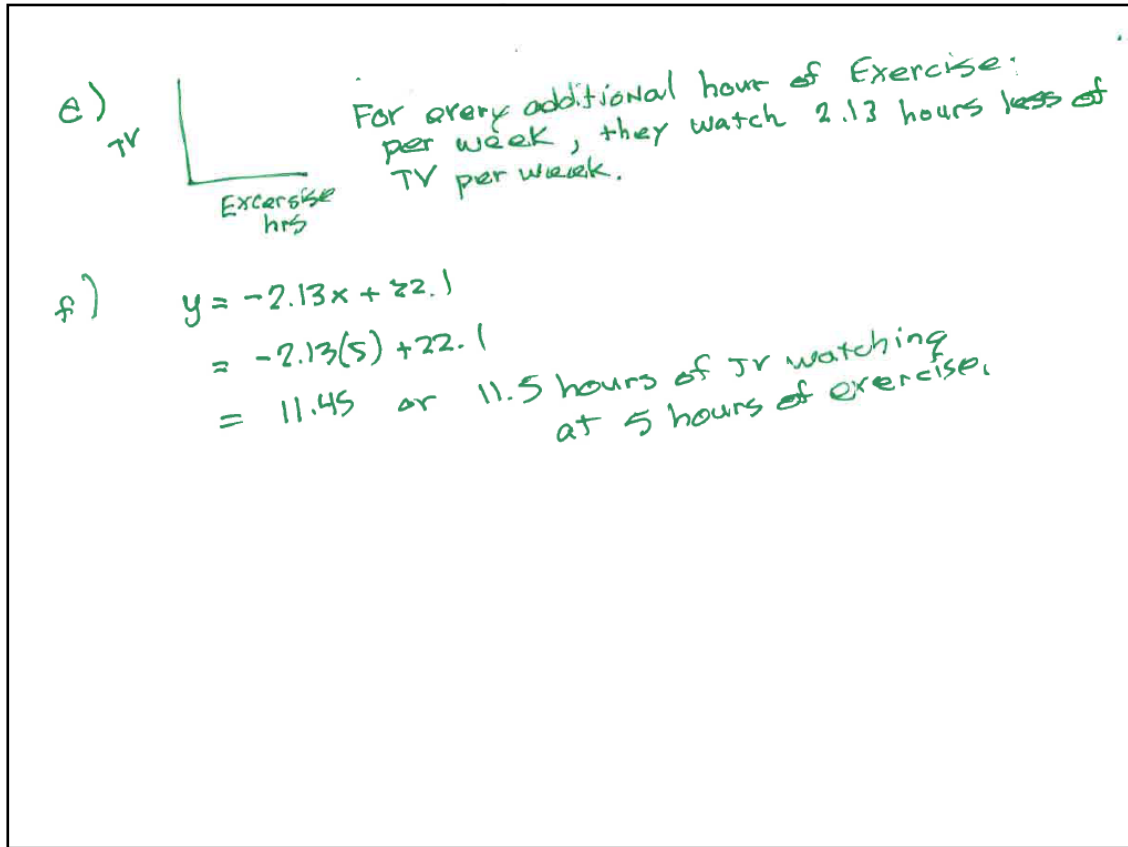 e)
TV
Excersise
hrs
For every additional hour of Exercise.
per week, they watch 2.13 hours less of
TV per week.
f)
y = -2.13x + 22.1
= -2.13(5) + 22.1
= 11.45 or 11.5 hours of TV watching
at 5 hours of exercise.